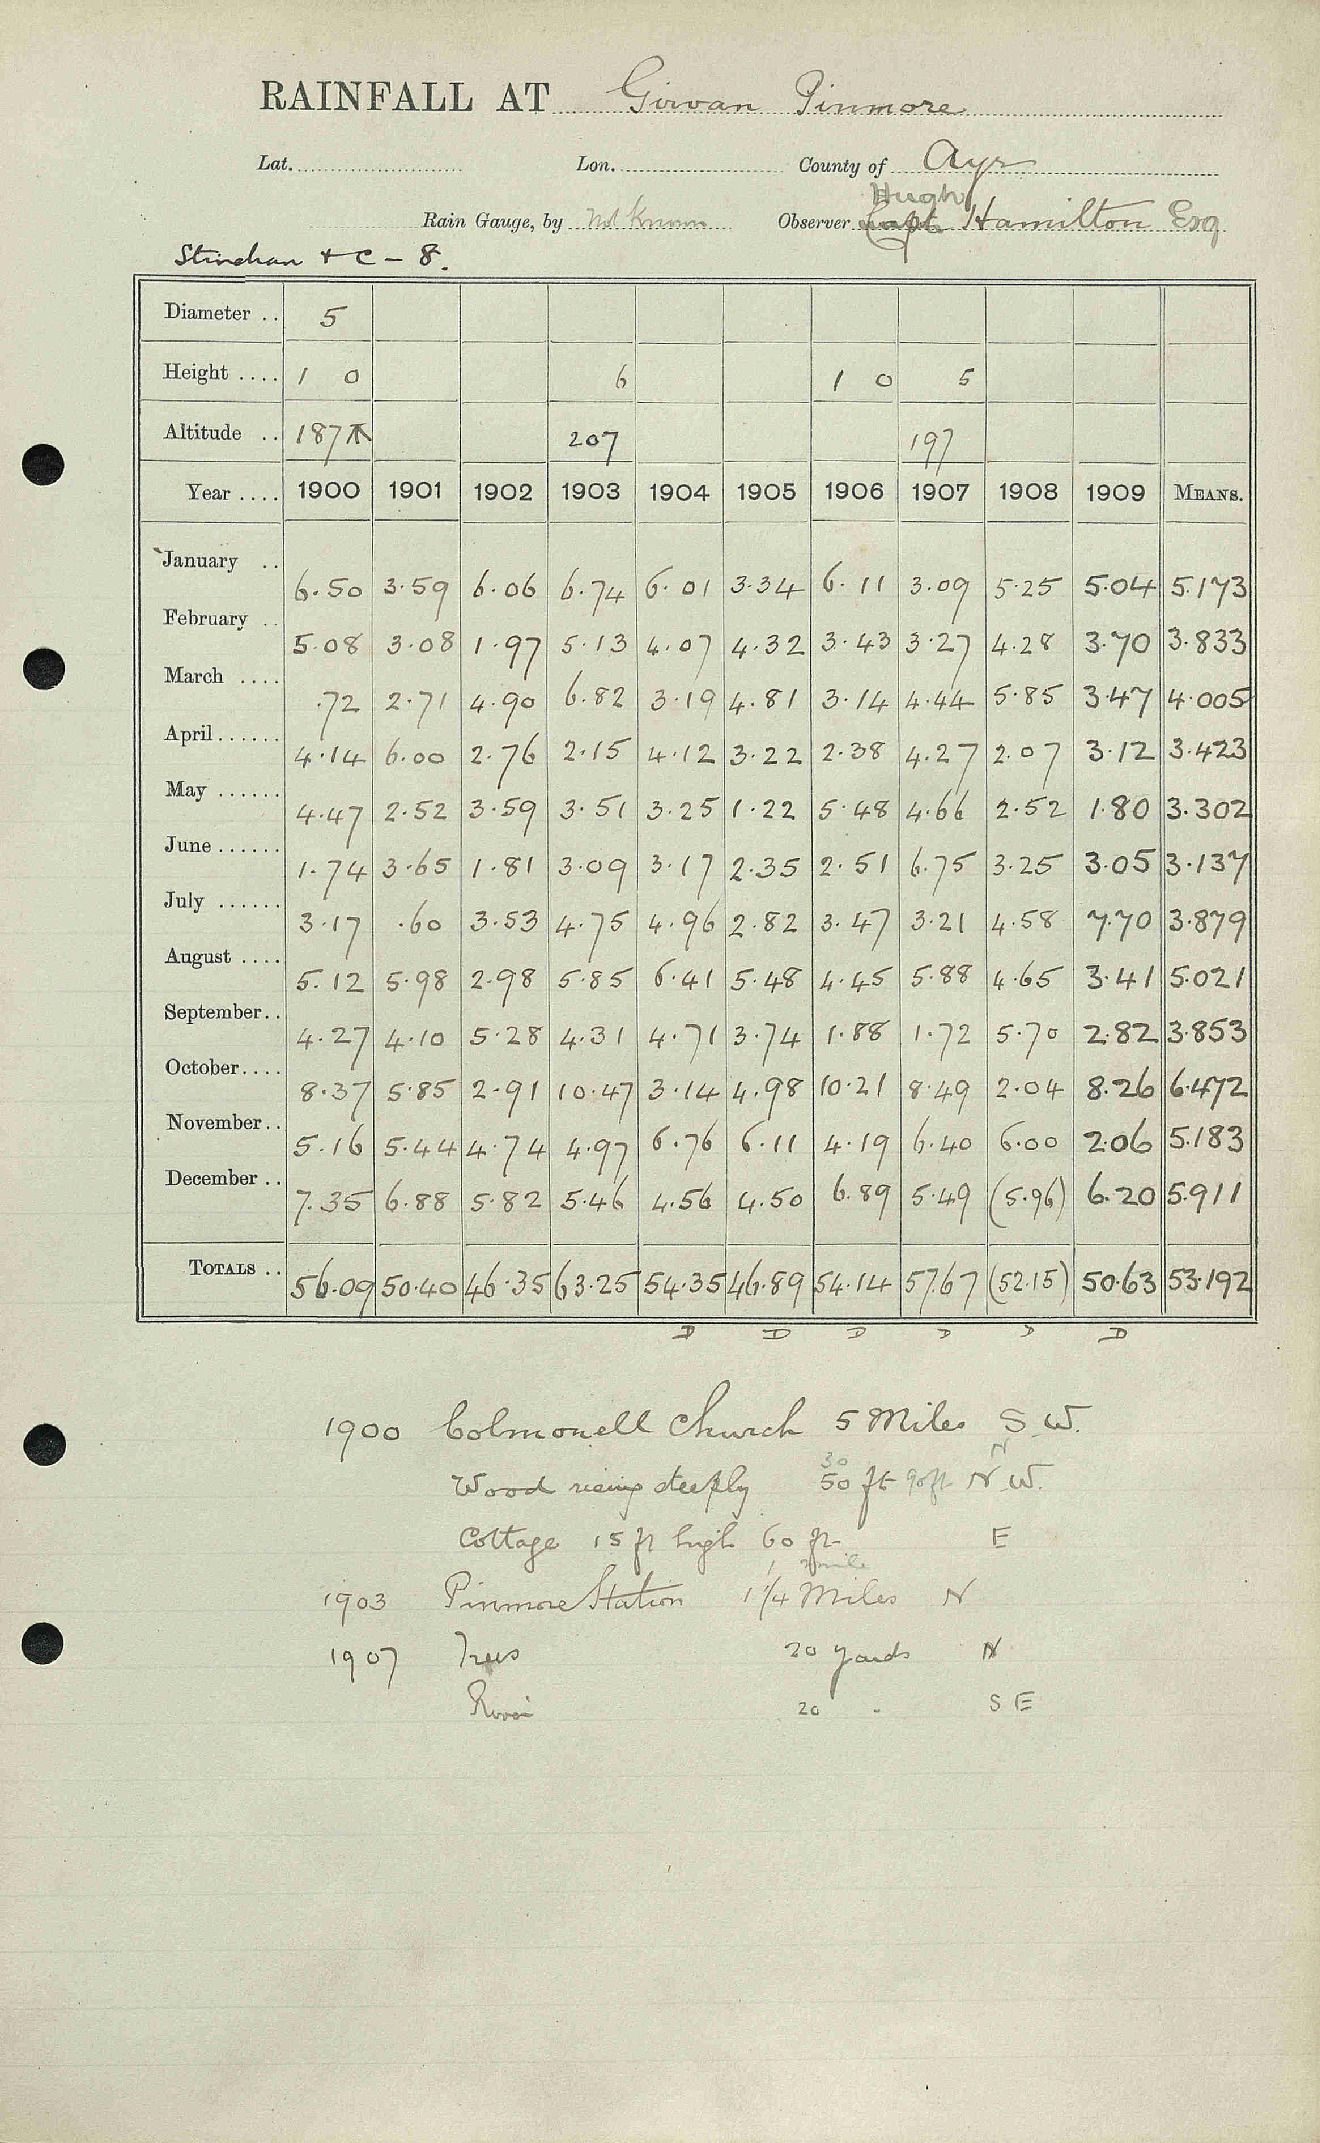 RAINFALL AT Girvan Pinmore
Lat. Lon. County of Ayr
Hugh
Rain Gauge, by Not Known Observer Capt. Hamilton Esq
Stinchar + C - 8.
Diameter .. 5
Height .... 1 0 6 1 0 5
Altitude .. 187 207 197
Year .... 1900 1901 1902 1903 1904 1905 1906 1907 1908 1909 MEANS.
January .. 6.50 3.59 6.06 6.74 6.01 3.34 6.11 3.09 5.25 5.04 5.173
February .. 5.08 3.08 1.97 5.13 4.07 4.32 3.43 3.27 4.28 3.70 3.833
March .... .72 2.71 4.90 6.82 3.19 4.81 3.14 4.44 5.85 3.47 4.005
April...... 4.14 6.00 2.76 2.15 4.12 3.22 2.38 4.27 2.07 3.12 3.423
May ...... 4.47 2.52 3.59 3.51 3.25 1.22 5.48 4.66 2.52 1.80 3.302
June ...... 1.74 3.65 1.81 3.09 3.17 2.35 2.51 6.75 3.25 3.05 3.137
July ...... 3.17 .60 3.53 4.75 4.96 2.82 3.47 3.21 4.58 7.70 3.879
August .... 5.12 5.98 2.98 5.85 6.41 5.48 4.45 5.88 4.65 3.41 5.021
September.. 4.27 4.10 5.28 4.31 4.71 3.74 1.88 1.72 5.70 2.82 3.853
October.... 8.37 5.85 2.91 10.47 3.14 4.98 10.21 8.49 2.04 8.26 6.472
November.. 5.16 5.44 4.74 4.97 6.76 6.11 4.19 6.40 6.00 2.06 5.183
December .. 7.35 6.88 5.82 5.46 4.56 4.50 6.89 5.49 (5.96) 6.20 5.911
TOTALS .. 56.09 50.40 46.35 63.25 54.35 46.89 54.14 57.67 (52.15) 50.63 53.192
D D D D D D
1900 Colmonell Church 5 Miles S.W.
30 N
Wood rising steeply 50 ft 90ft N.W.
Cottage 15 ft high 60 ft E
mile
1903 Pinmore Station 1 1/4 Miles N
1907 Trees 20 yards N
River 20 " S E